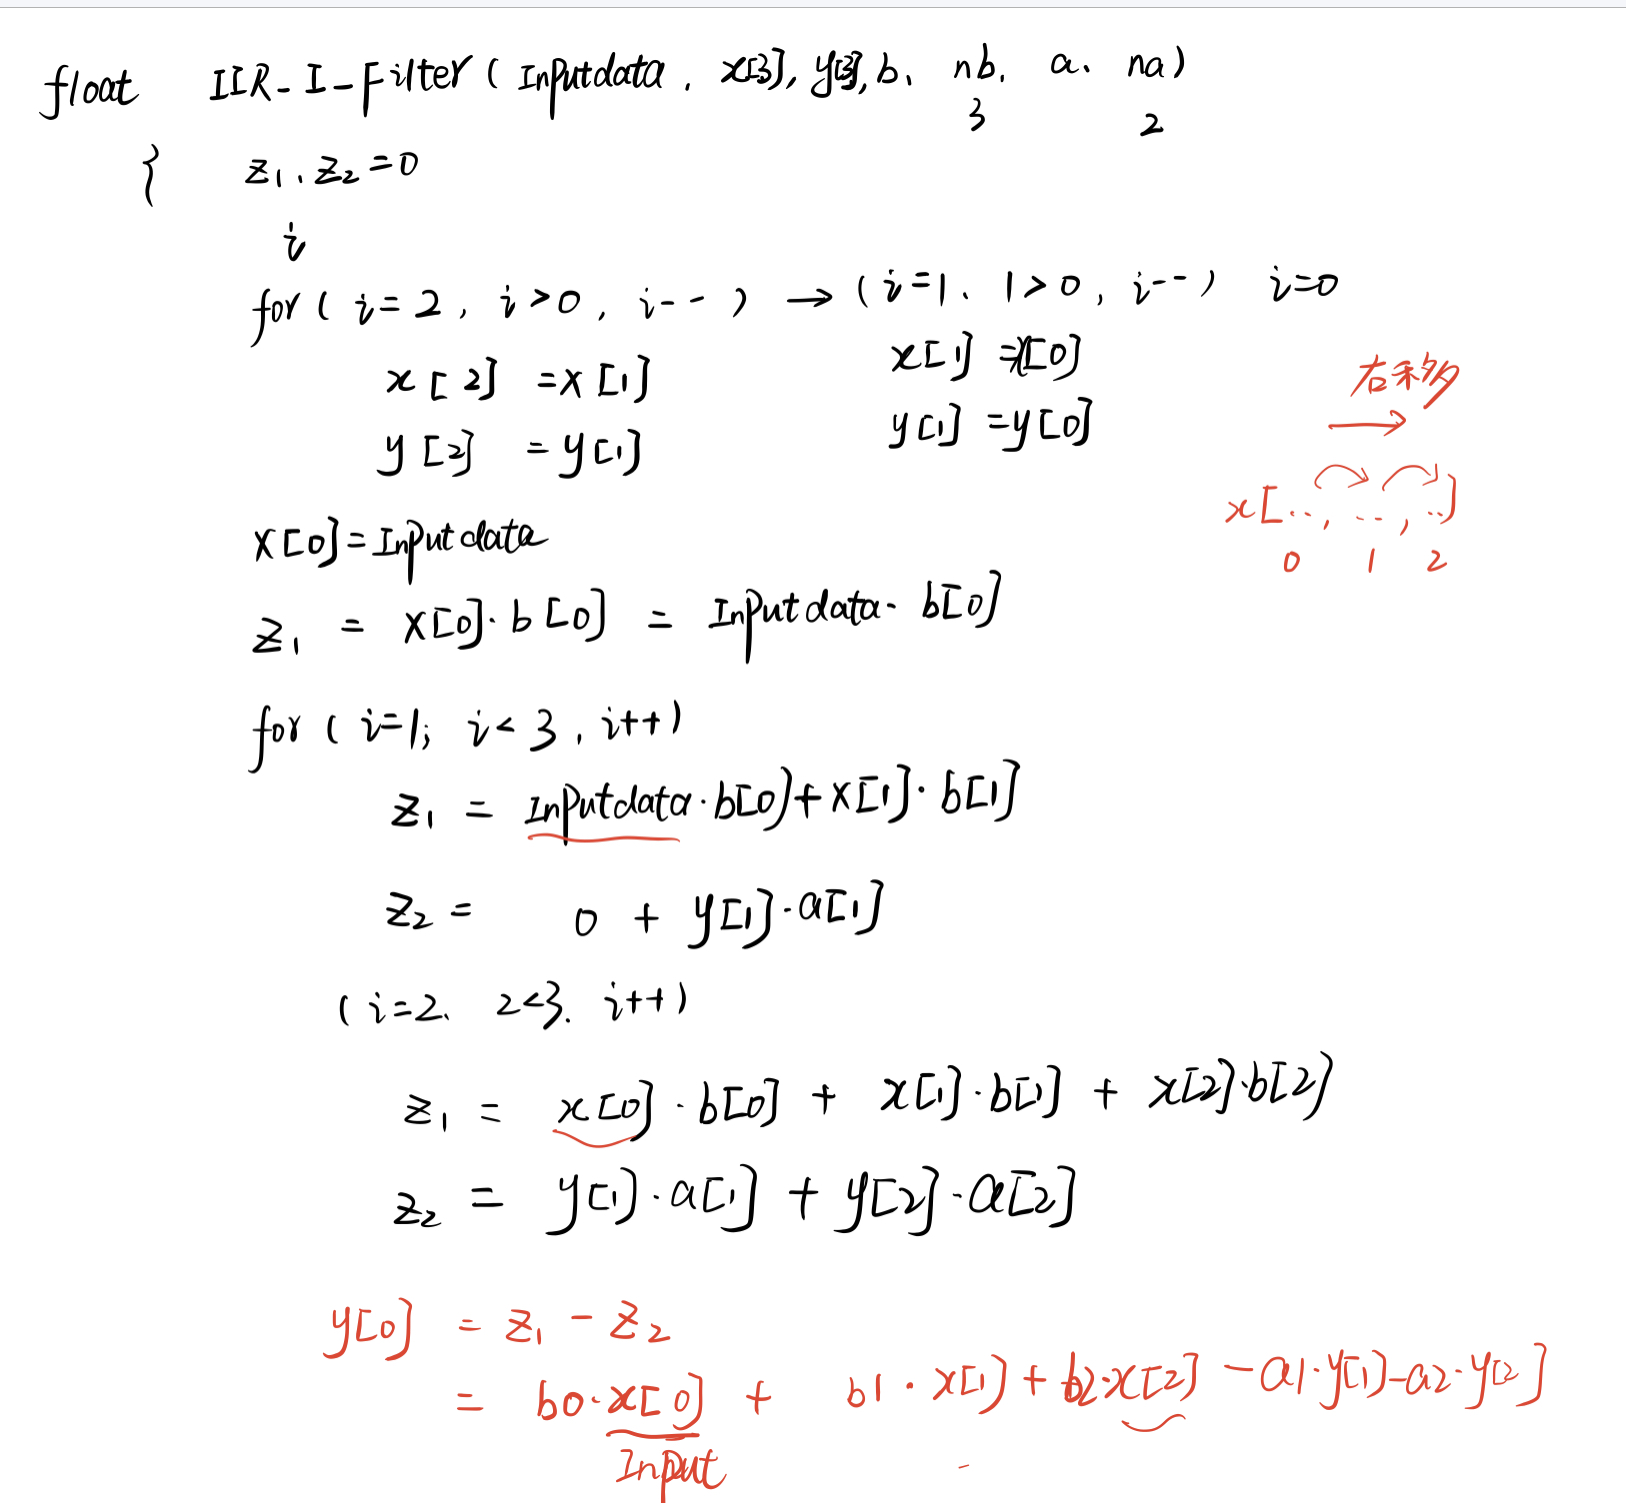 float IIR-I-Filter ( Inputdata , x[3], y[3], b、 nb, a、 na )
3 2
{ z1、z2=0
i
for ( i=2, i>0, i-- ) → ( i=1、 1>0, i-- ) i=0
x[2] =x[1] x[1] =x[0]
y[2] =y[1] y[1] =y[0]
右移
→
x[.., .., ..]
0 1 2
x[0]=Inputdata
z1 = x[0]·b[0] = Inputdata· b[0]
for ( i=1; i<3, i++ )
z1 = Inputdata·b[0]+x[1]·b[1]
z2 = 0 + y[1]·a[1]
( i=2、 2<3、 i++ )
z1 = x[0]·b[0] + x[1]·b[1] + x[2]·b[2]
z2 = y[1]·a[1] + y[2]·a[2]
y[0] = z1 - z2
= b0·x[0] + b1·x[1] + b2·x[2] -a1·y[1]-a2·y[2]
Input